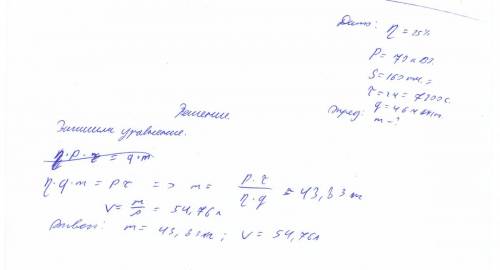 Дано: η = 25%
P = 70 кВт.
S = 160 км.
τ = 2ч = 7200 с.
q = 46 МДж/кг
m - ?
Решение.
Запишем уравнение.
η·P·τ = q·m
η·q·m = Pτ => m = P·τ / η·q = 43,83 кг
V = m/ρ = 54,76 л
Ответ: m = 43,83 кг; V = 54,76 л